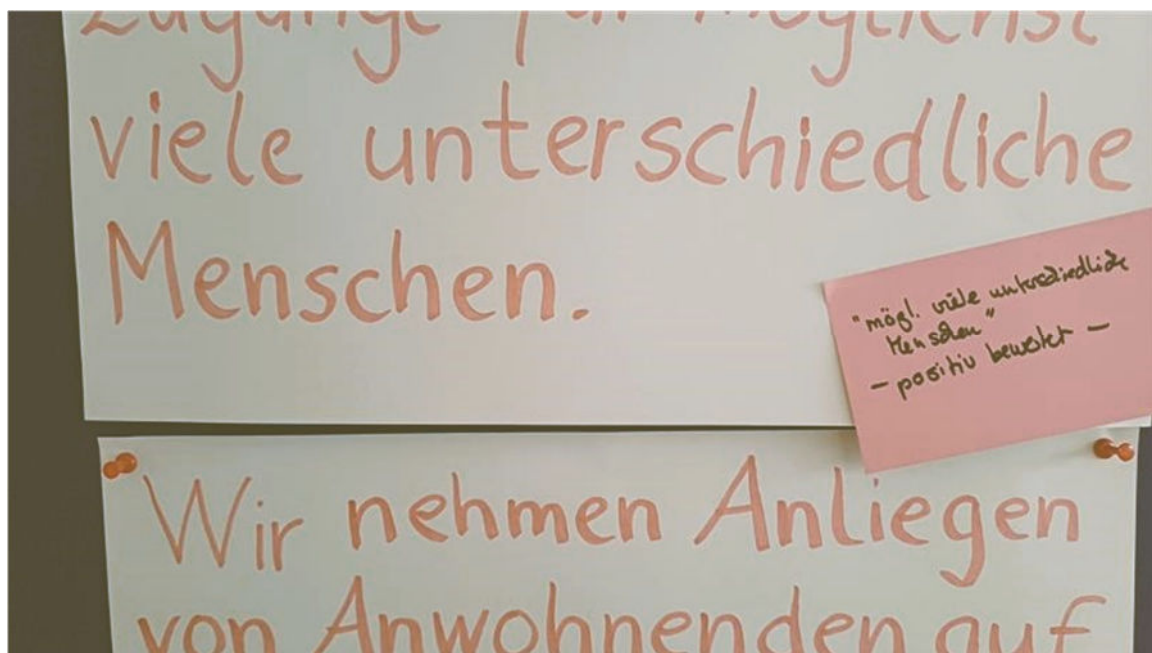 Zugänge für möglichst
viele unterschiedliche
Menschen.
"mögl. viele unterschiedliche
Menschen"
– positiv bewertet –
Wir nehmen Anliegen
von Anwohnenden auf